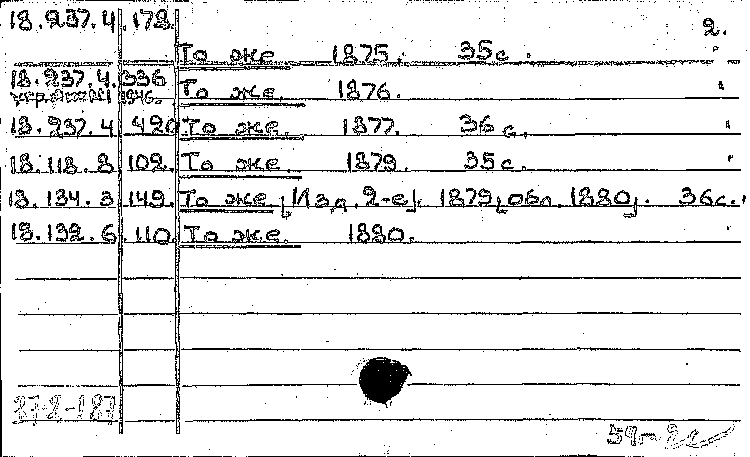 18.237.4.178. 2.
То же 1875. 35с.
18.237.4.336 То же. 1876.
1946.
18.237.4.420 То же. 1877. 36 с.
18.118.8.102. То же. 1879. 35с.
18.134.3.149. То же. [Изд. 2-е]. 1879[обл. 1880]. 36с.
18.132.6.110. То же. 1880.
37-2-187